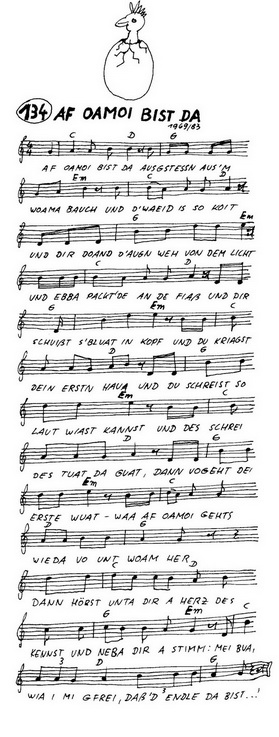 134 AF OAMOI BIST DA
1969/83
C D G
AF OAMOI BIST DA AUSGSTESSN AUS'M
Em C D
WOAMA BAUCH UND D'WAEID IS SO KOIT
G Em
UND DIR DOAND D'AUGN WEH VON DEM LICHT
C D
UND EBBA PACKT'DE AN DE FIAß UND DIR
G Em C
SCHUIßT S'BLUAT IN KOPF UND DU KRIAGST
D G
DEIN ERSTN HAUA UND DU SCHREIST SO
Em C
LAUT WIAST KANNST UND DES SCHREI
D G
DES TUAT DA GUAT, DANN VOGEHT DEI
Em C
ERSTE WUAT - WAA AF OAMOI GEHTS
D G
WIEDA VO UNT WOAM HER
C D
DANN HÖRST UNTA DIR A HERZ DES
G Em C
KENNST UND NEBA DIR A STIMM: MEI BUA,
3 D G
WIA I MI GFREI, DAß'D 'ENDLE DA BIST...!